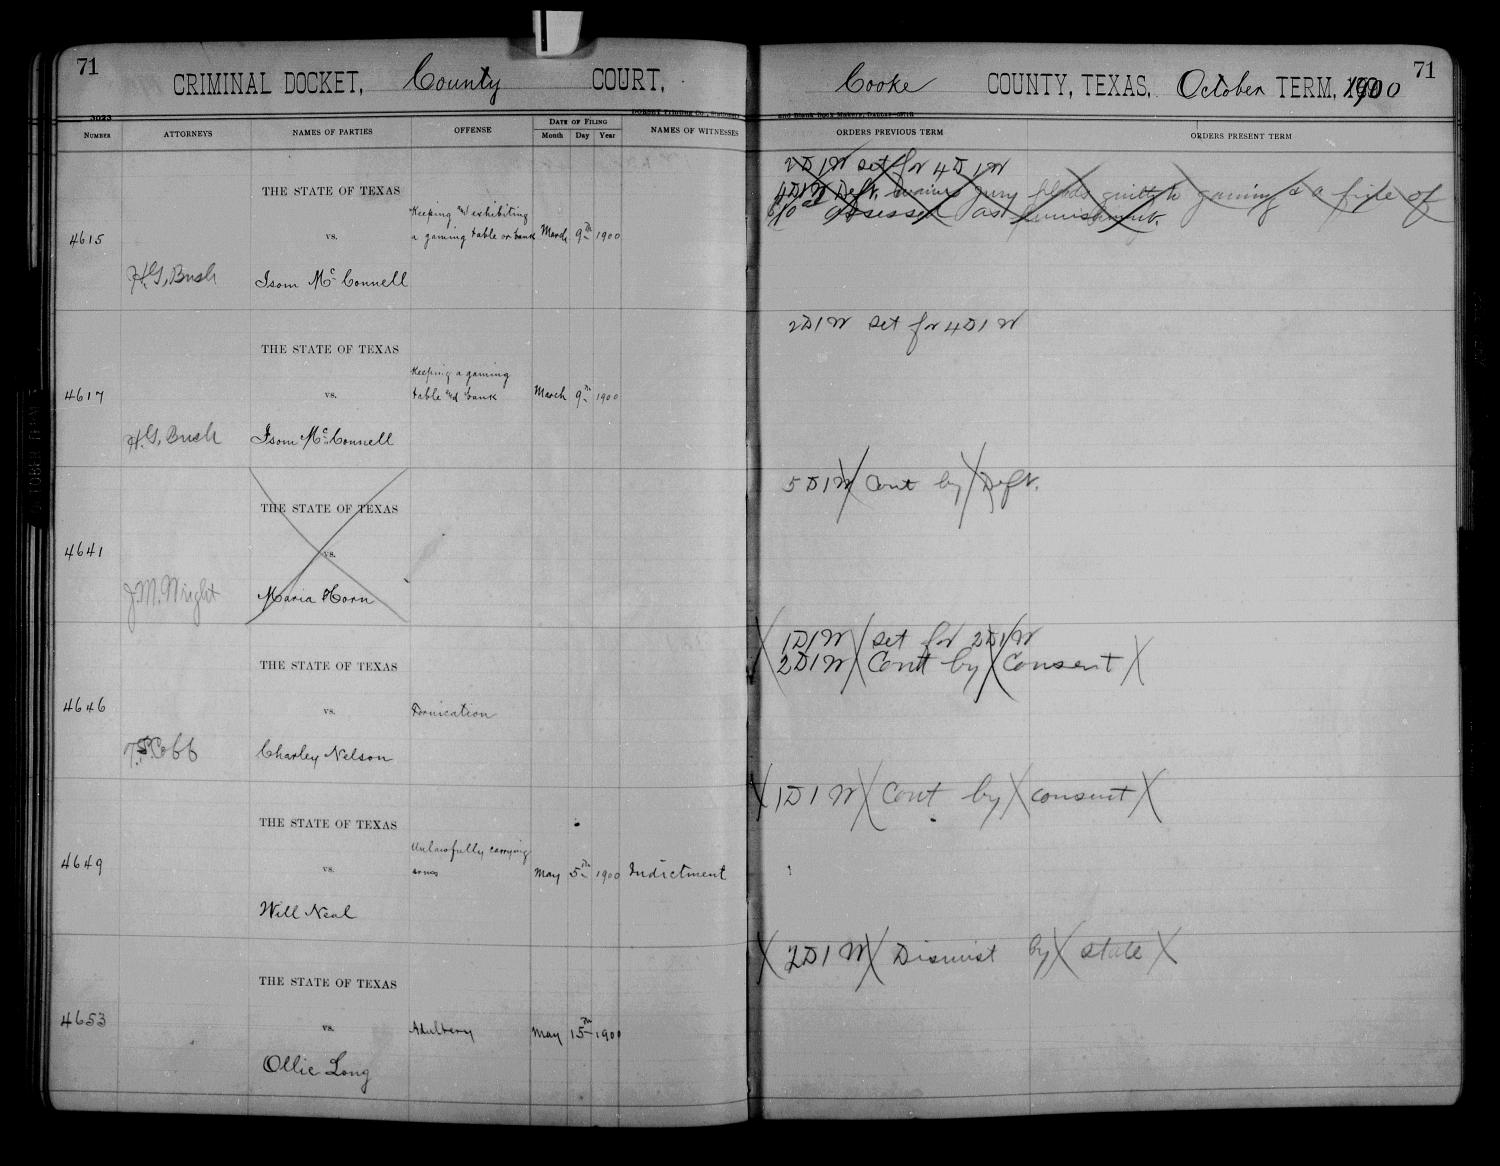 71
CRIMINAL DOCKET, County COURT,
Cooke COUNTY, TEXAS, October TERM, 1900
71
3023
NUMBER
ATTORNEYS
NAMES OF PARTIES
OFFENSE
DATE OF FILING
Month Day Year
NAMES OF WITNESSES
ORDERS PREVIOUS TERM
ORDERS PRESENT TERM
4615
H.G. Bush
THE STATE OF TEXAS
vs.
Isom McConnell
Keeping and exhibiting
a gaming table or bank
March 9th 1900
2D1W set for 4D1W
4D1W Deft. waives jury pleads guilty to gaming & a fine of
$10 00 assessed as punishment.
4617
H.G. Bush
THE STATE OF TEXAS
vs.
Isom McConnell
Keeping a gaming
table and bank
March 9th 1900
2D1W set for 4D1W
4641
J.M. Wright
THE STATE OF TEXAS
vs.
Maria Horn
5D1W Cont by Deft.
4646
Cobb
THE STATE OF TEXAS
vs.
Charley Nelson
Fornication
1D1W set for 2D1W
2D1W Cont by Consent
4649
THE STATE OF TEXAS
vs.
Will Neal
Unlawfully carrying
arms
May 5th 1900
Indictment
1D1W Cont by consent
4653
THE STATE OF TEXAS
vs.
Ollie Long
Adultery
May 15th 1900
2D1W Dismist by state